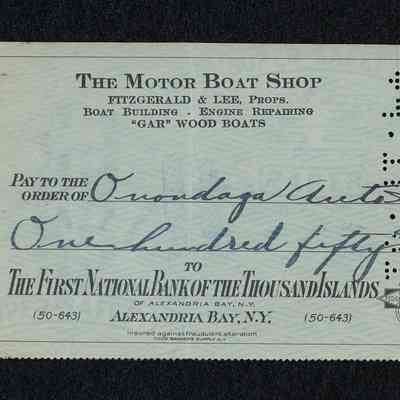 THE MOTOR BOAT SHOP
FITZGERALD & LEE, PROPS.
BOAT BUILDING - ENGINE REPAIRING
"GAR" WOOD BOATS
PAY TO THE
ORDER OF Onondaga Auto
One hundred fifty
TO
THE FIRST NATIONAL BANK OF THE THOUSAND ISLANDS
OF ALEXANDRIA BAY, N.Y.
(50-643) ALEXANDRIA BAY, N.Y. (50-643)
Insured against fraudulent alteration